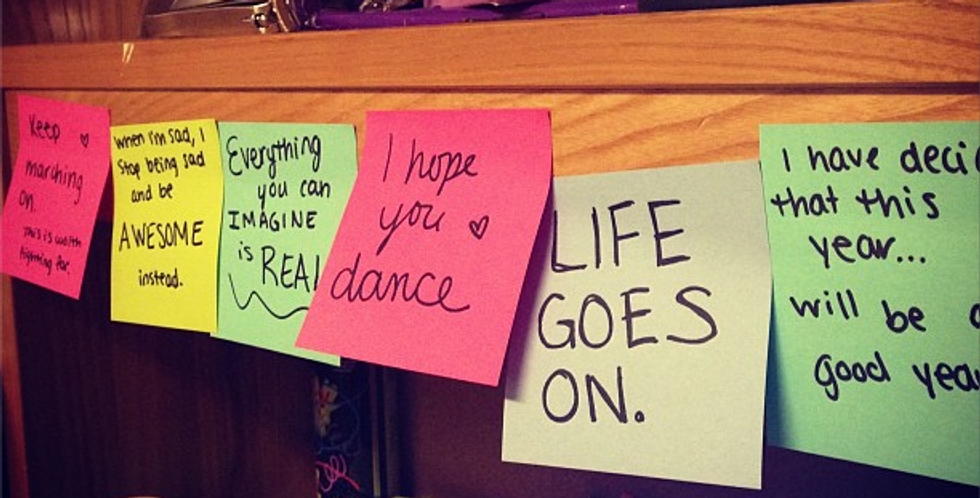 Keep
marching
on.
This is worth
fighting for.
When I'm sad, I
stop being sad
and be
AWESOME
instead.
Everything
you can
IMAGINE
is REAL
I hope
you
dance
LIFE
GOES
ON.
I have deci
that this
year...
will be
good year